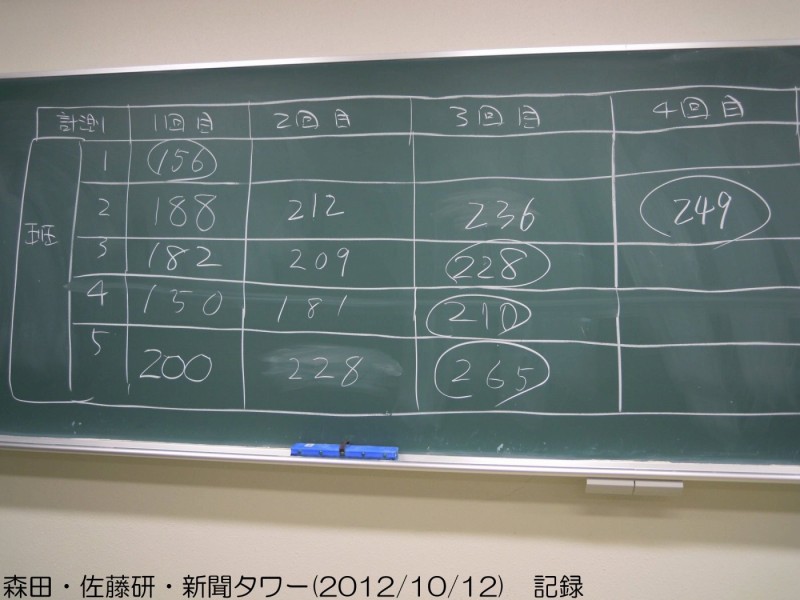 計測 1回目 2回目 3回目 4回目
班
1 156
2 188 212 236 249
3 182 209 228
4 150 181 210
5 200 228 265
森田・佐藤研・新聞タワー(2012/10/12) 記録